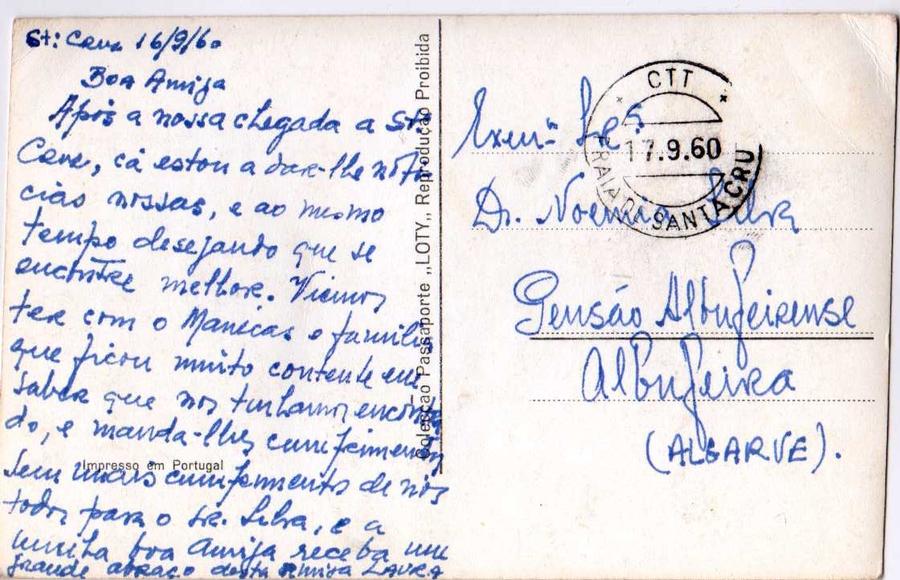 St: Cruz 16/9/60
Boa Amiga
Após a nossa chegada a Stª
Cruz, cá estou a dar-lhe notí
cias nossas, e ao mesmo
tempo desejando que se
encontre melhor. Viemos
ter com o Manicas e família
que ficou muito contente em
saber que nos tinhamos encontra
do, e manda-lhes cumprimentos
Sem mais cumprimentos de nós
todos para o sr. Silva, e a
minha boa Amiga receba um
grande abraço desta amiga LAURA
Impresso em Portugal
Colecção Passaporte „LOTY„ Reprodução Proibida
CTT
17.9.60
PRAIA DE SANTA CRU
Exmª Srª
D. Noemia Silva
Pensão Albufeirense
Albufeira
(ALGARVE).